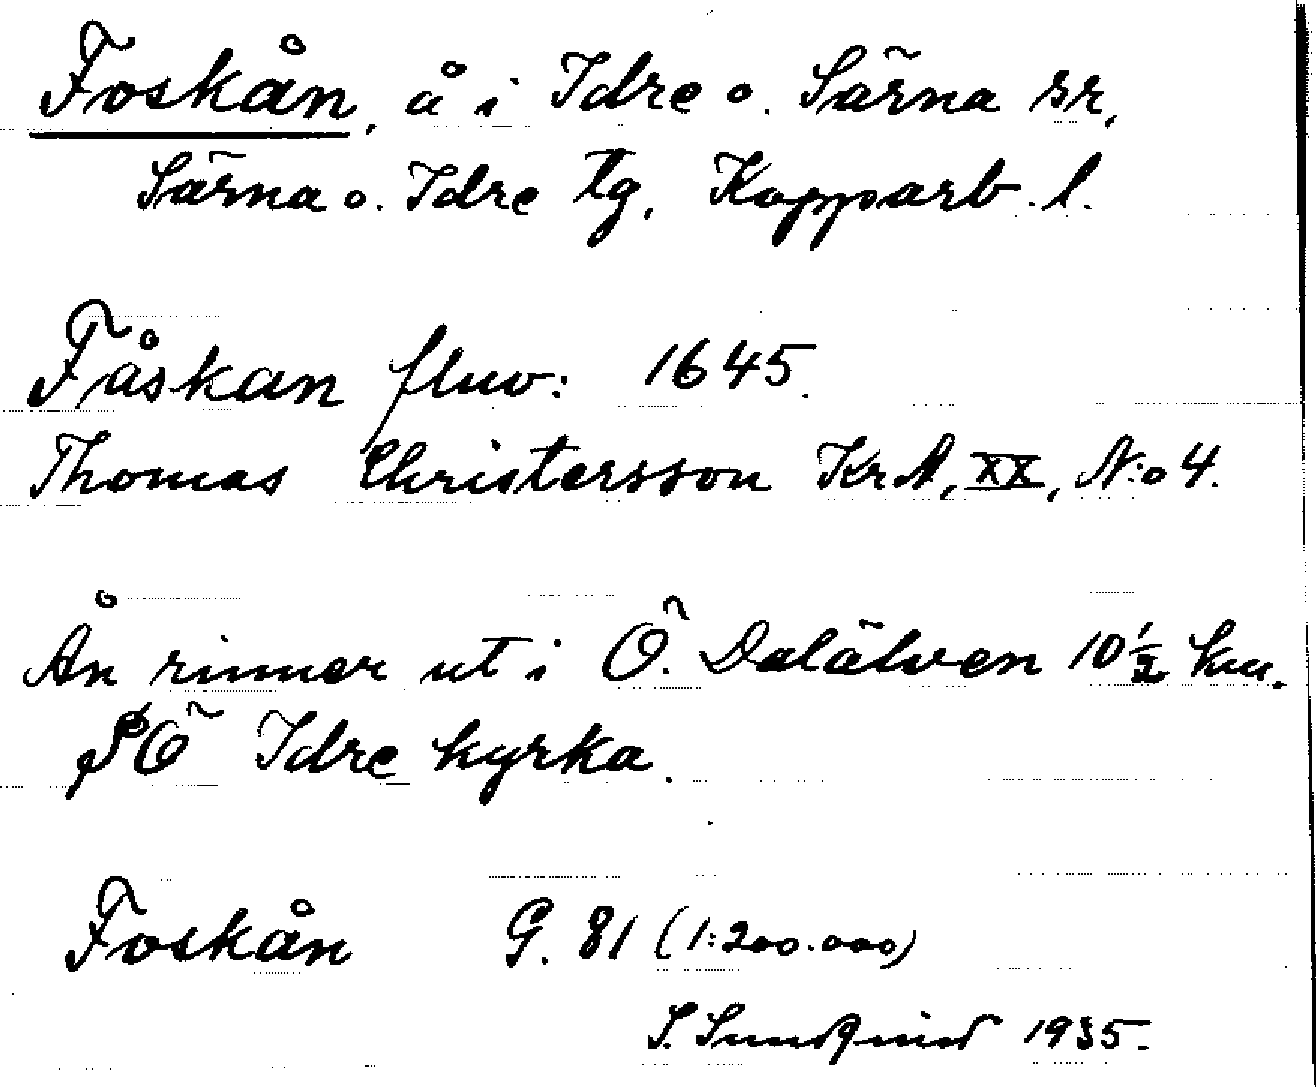 Foskån, å i Idre o. Särna sr,
Särna o. Idre tg, Kopparb. l.
Fåskan fluv: 1645.
Thomas Christersson KrA, XX, N:o 4.
Ån rinner ut i Ö. Dalälven 10 1/2 km.
SÖ Idre kyrka.
Foskån G. 81 (1:200.000)
S. Sundqvist 1935.